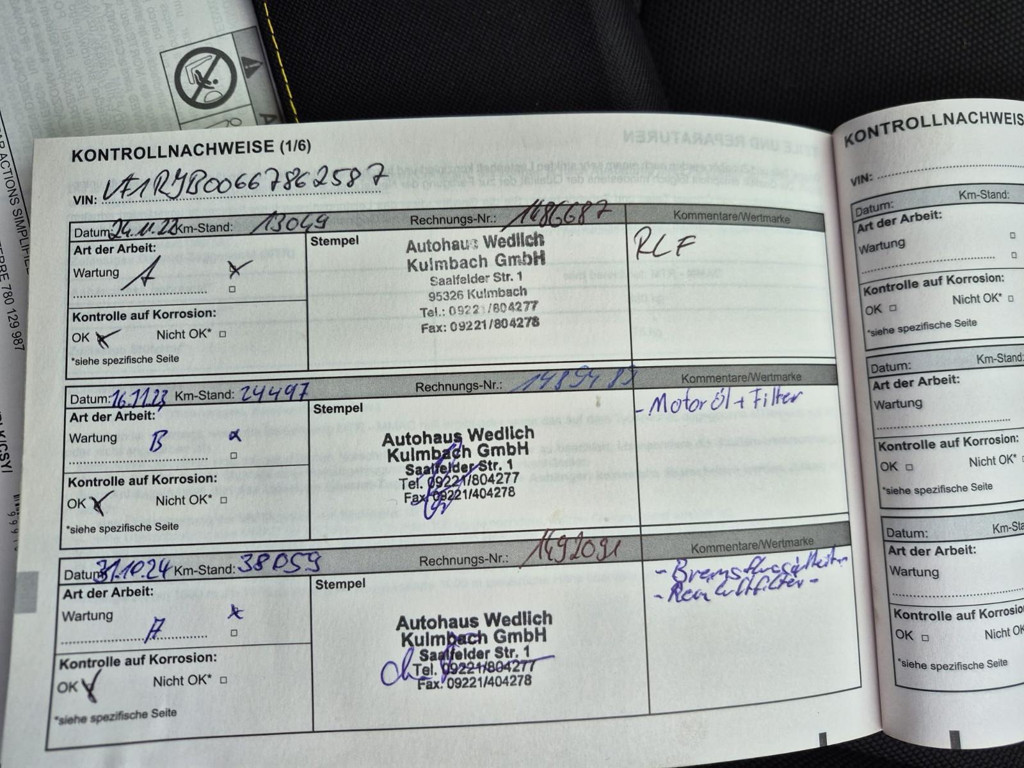 KONTROLLNACHWEISE (1/6)
VIN: VF1RJB00667862587
Datum: 24.11.22 Km-Stand: 13049 Rechnungs-Nr.: 1486687 Kommentare/Wertmarke
Art der Arbeit: Stempel
Wartung A
Kontrolle auf Korrosion:
OK Nicht OK*
*siehe spezifische Seite
Autohaus Wedlich
Kulmbach GmbH
Saalfelder Str. 1
95326 Kulmbach
Tel.: 09221/804277
Fax: 09221/804278
RLF
Datum: 16.11.23 Km-Stand: 24497 Rechnungs-Nr.: 1489483 Kommentare/Wertmarke
Art der Arbeit: Stempel
Wartung B
Kontrolle auf Korrosion:
OK Nicht OK*
*siehe spezifische Seite
Autohaus Wedlich
Kulmbach GmbH
Saalfelder Str. 1
Tel. 09221/804277
Fax 09221/404278
- Motoröl + Filter
Datum: 31.10.24 Km-Stand: 38059 Rechnungs-Nr.: 1492091 Kommentare/Wertmarke
Art der Arbeit: Stempel
Wartung A
Kontrolle auf Korrosion:
OK Nicht OK*
*siehe spezifische Seite
Autohaus Wedlich
Kulmbach GmbH
Saalfelder Str. 1
Tel. 09221/804277
Fax. 09221/404278
- Bremsflüssigkeit
KONTROLLNACHWEIS
VIN:
Datum: Km-Stand:
Art der Arbeit:
Wartung
Kontrolle auf Korrosion:
OK Nicht OK*
*siehe spezifische Seite
Datum: Km-Stand:
Art der Arbeit:
Wartung
Kontrolle auf Korrosion:
OK Nicht OK*
*siehe spezifische Seite
Datum: Km-Sta
Art der Arbeit:
Wartung
Kontrolle auf Korrosio
OK Nicht OK
*siehe spezifische Seite
780 129 987